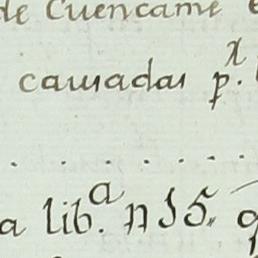 de Cuencamé
causadas p.r
a lib.a n 15.